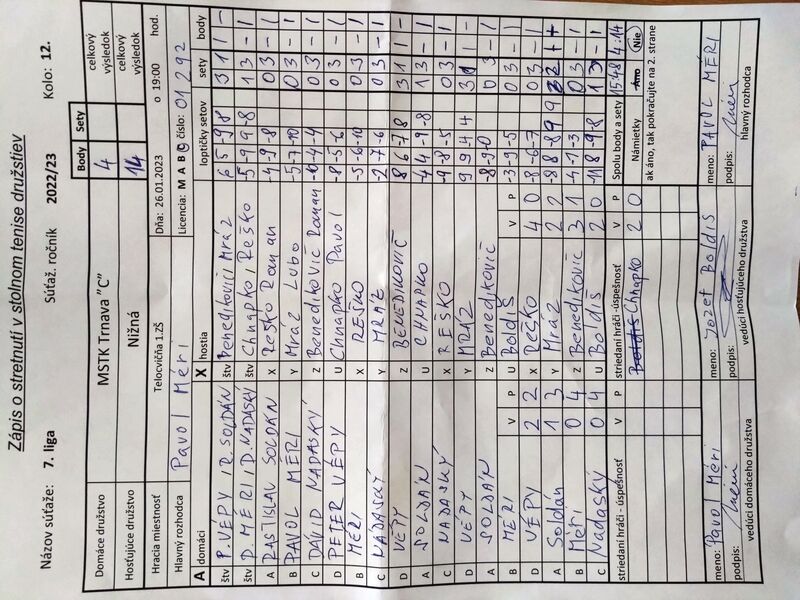 Zápis o stretnutí v stolnom tenise družstiev
Názov súťaže: 7. liga Súťaž. ročník 2022/23 Kolo: 12.
Body Sety celkový výsledok celkový výsledok
Domáce družstvo MSTK Trnava "C" 4
Hosťujúce družstvo Nižná 14
Hracia miestnosť Telocvičňa 1.ZŠ Dňa: 26.01.2023 o 19:00 hod.
Hlavný rozhodca Pavol Méri Licencia: M A B C číslo: 01292
A domáci X hostia loptičky setov sety body
štv P. VÉPY / R. SOLDÁN štv Benedikovič / Mráz 6 5 -9 -8 3 1 1 -
štv D. MÉRI / D. NADASKÝ štv Chnapko / Reško 5 -9 -9 -8 1 3 - 1
A RASTISLAV SOLDÁN X Reško Roman -4 -9 -8 0 3 - 1
B PAVOL MÉRI Y Mráz Lubo -5 -7 -10 0 3 - 1
C DÁVID NADASKÝ Z Benedikovič Roman 0 3 - 1
D PETER VÉPY U Chnapko Pavol -8 -5 -6 0 3 - 1
B MÉRI X REŠKO -5 -6 -10 0 3 - 1
C NADASKÝ Y MRÁZ -2 -7 -6 0 3 - 1
D VÉPY Z BENEDIKOVIČ 8 6 -7 8 3 1 1 -
A SOLDÁN U CHNAPKO -4 4 -9 -8 1 3 - 1
C NADASKÝ X REŠKO -9 -8 -5 0 3 - 1
D VÉPY Y MRÁZ 9 9 4 4 3 1 -
A SOLDÁN Z Benedikovič -8 -9 -0 0 3 - 1
B MÉRI V P U Boldiš V P -3 -9 -5 0 3 - 1
D VÉPY 2 2 X Reško 4 0 -8 -6 -7 0 3 - 1
A Soldán 1 3 Y Mráz 2 2 -8 8 -8 9 9
B Méri 0 4 Z Benedikovič 3 1 -4 -7 -3 0 3 - 1
C Nadaský 0 4 U Boldiš 2 0 -11 8 -9 -8 1 3 - 1
striedaní hráči - úspešnosť V P striedaní hráči -úspešnosť V P Spolu body a sety 15:48 4:14
Chnapko 2 0 Námietky Áno Nie
ak áno, tak pokračujte na 2. strane
meno: Pavol Méri meno: Jozef Boldiš meno: PAVOL MÉRI
podpis: podpis: podpis:
vedúci domáceho družstva vedúci hosťujúceho družstva hlavný rozhodca